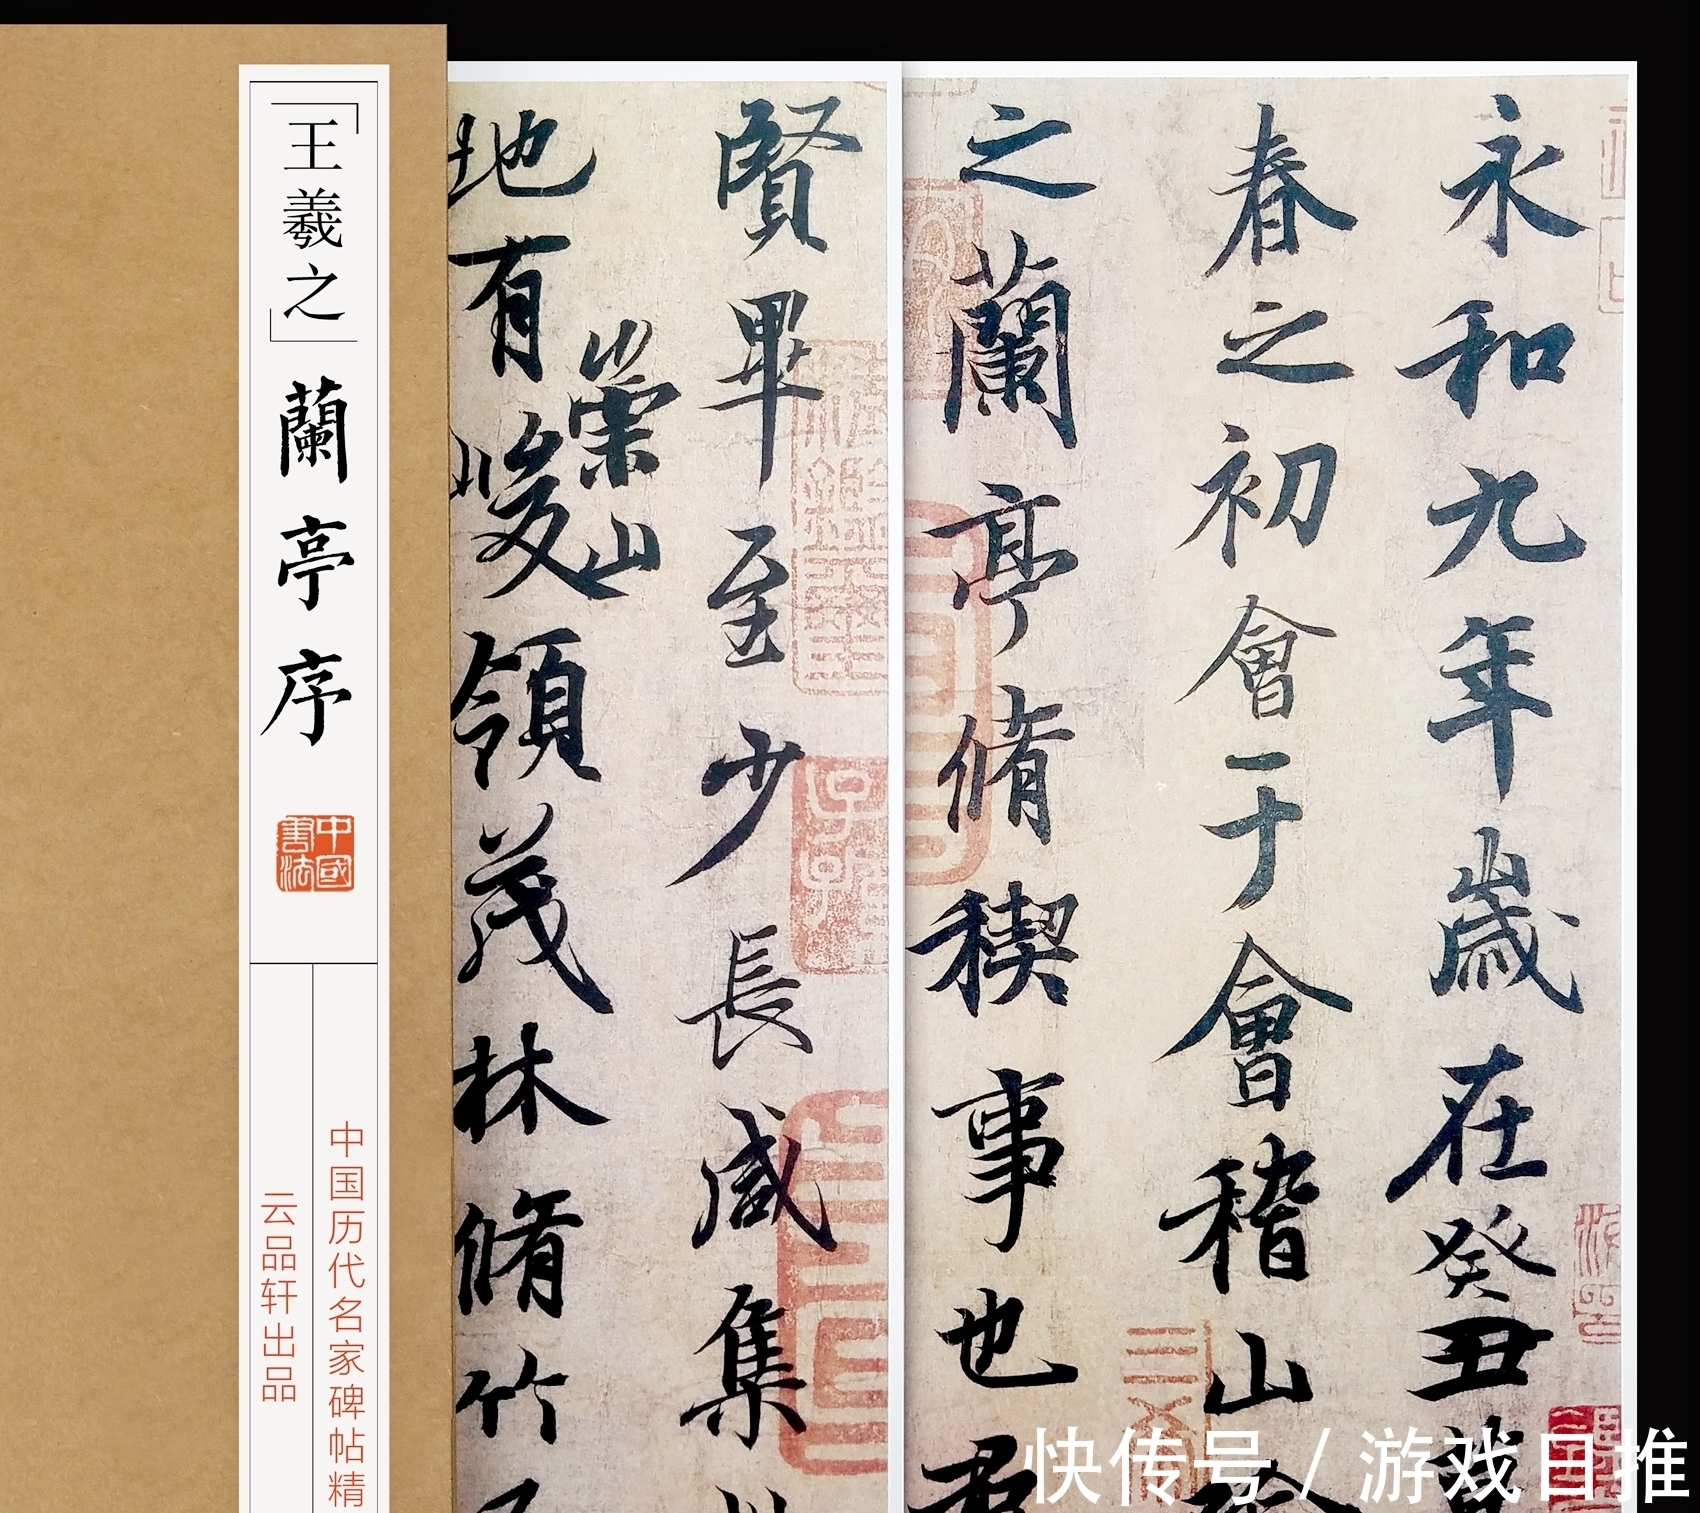 「王羲之」蘭亭序
中國書法
中国历代名家碑帖精
云品轩出品
永和九年歲在癸丑
春之初會于會稽山
之蘭亭脩稧事也
賢畢至少長咸集
地有崇山峻領茂林脩竹
快传号 / 游戏目推